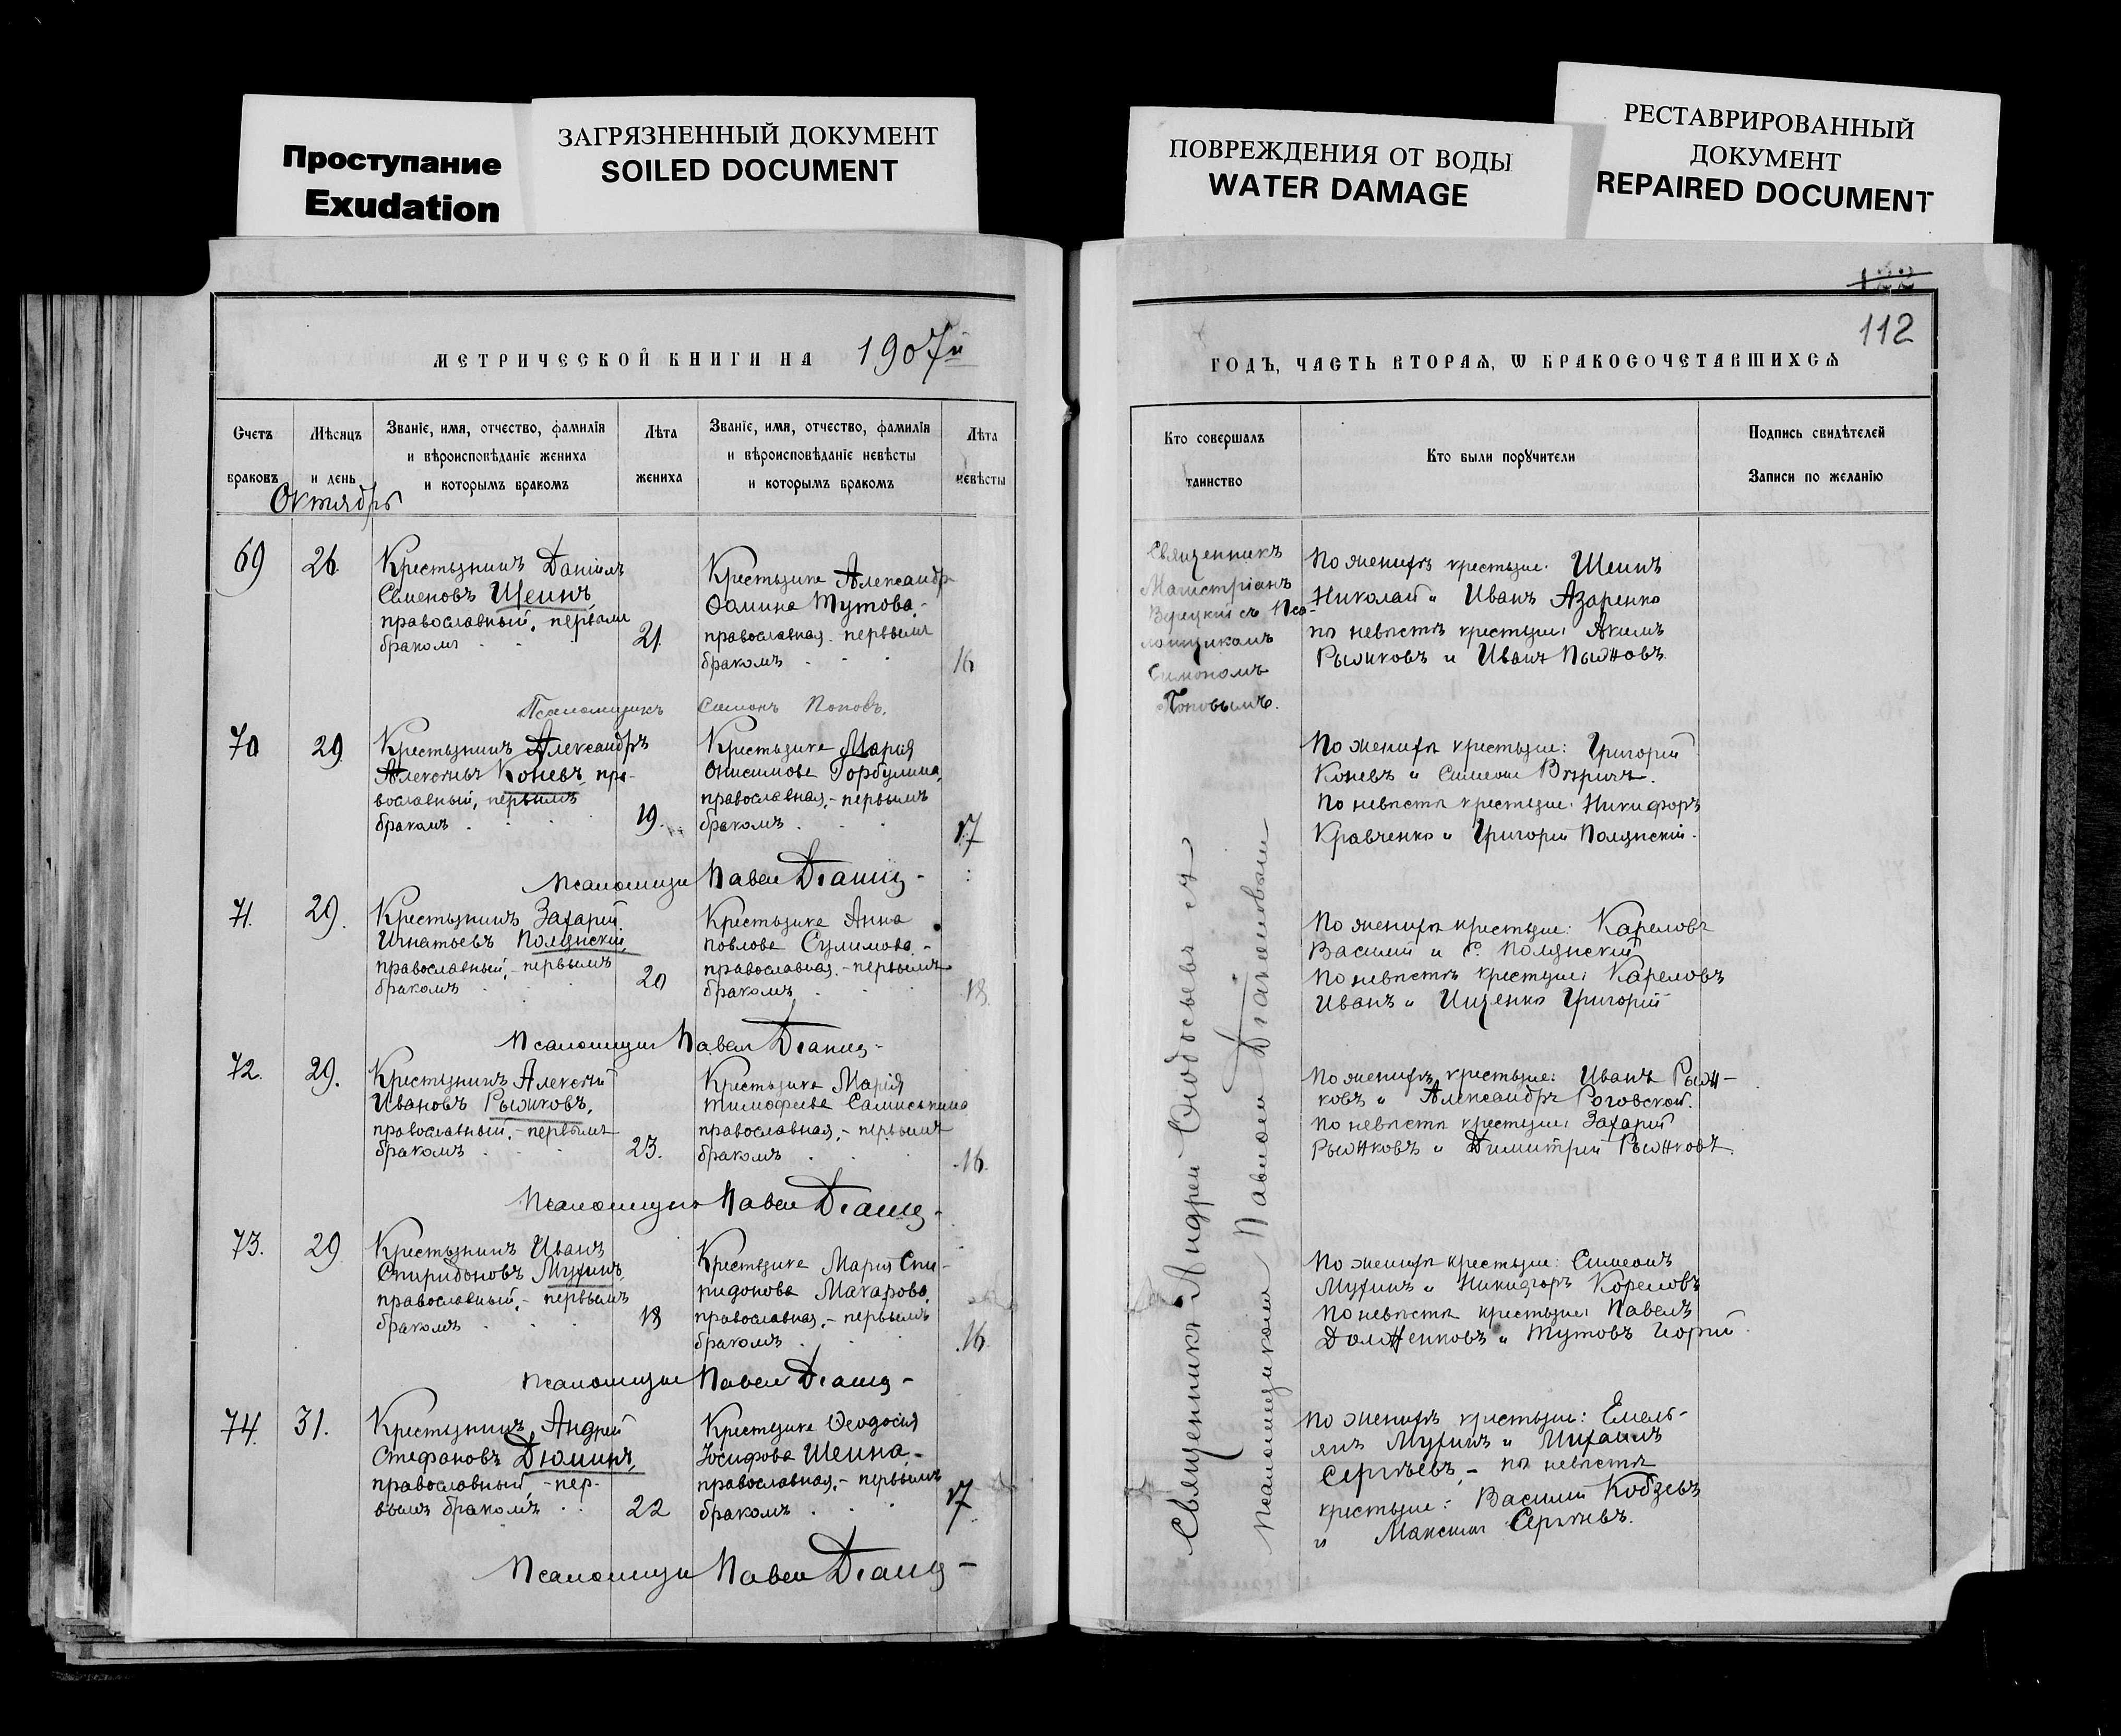 Проступание
Exudation
ЗАГРЯЗНЕННЫЙ ДОКУМЕНТ
SOILED DOCUMENT
ПОВРЕЖДЕНИЯ ОТ ВОДЫ
WATER DAMAGE
РЕСТАВРИРОВАННЫЙ
ДОКУМЕНТ
REPAIRED DOCUMENT
МЕТРИЧЕСКОЙ КНИГИ НА 1907й
Счетъ
браковъ
Мѣсяцъ
и день
Званіе, имя, отчество, фамилія
и вѣроисповѣданіе жениха
и которымъ бракомъ
Лѣта
жениха
Званіе, имя, отчество, фамилія
и вѣроисповѣданіе невѣсты
и которымъ бракомъ
Лѣта
невѣсты
Октябрь
69
26.
Крестьянинъ Даніилъ
Семеновъ Щеинъ,
православный, первымъ
бракомъ
21.
Крестьянка Александр
Фомина Тутова,-
православная первымъ
бракомъ
16
Псаломщикъ Симонъ Поповъ.
70
29
Крестьянинъ Александръ
Алексѣевъ Коневъ, пра-
вославный, первымъ
бракомъ
19.
Крестьянка Марія
Онисимова Горбулина,
православная,- первымъ
бракомъ
17
Псаломщи Павел Діащ-
71.
29.
Крестьянинъ Захарій
Игнатьевъ Полянскій,
православный,- первымъ
бракомъ
20
Крестьянка Анна
Павлова Сулимова-
православная.- первымъ
бракомъ
18
Псаломщи Павел Діащ-
72.
29.
Крестьянинъ Алексѣй
Ивановъ Рыжковъ,
православный,- первымъ
бракомъ
23.
Крестьянка Марія
Тимофеева
православная,- первымъ
бракомъ
16.
Псаломщи Павел Діащ-
73.
29
Крестьянинъ Иванъ
Спиридоновъ Мухинъ,
православный,- первымъ
бракомъ
18
Крестьянка Марія Спи-
ридонова Макарова,
православная,- первымъ
бракомъ
16.
Псаломщи Павел Діащ-
74.
31.
Крестьянинъ Андрей
Стефановъ Дюминъ,
православный,- пер-
вымъ бракомъ
22
Крестьянка Феодосія
Іосифова Шеина,-
православная,- первымъ
бракомъ
17
Псаломщи Павел Діащ-
112
ГОДЪ, ЧАСТЬ ВТОРАЯ, Ѡ БРАКОСОЧЕТАВШИХСЯ
Кто совершалъ
таинство
Кто были поручители
Подпись свидѣтелей
Записи по желанію
Священникъ
съ Пса-
ломщикомъ
Симономъ
Поповымъ.
По женихѣ крестьяне: Шеинъ
Николай и Иванъ Азаренко
по невѣстѣ крестьяне: Акимъ
Рыжковъ и Иванъ
По женихѣ крестьяне: Григорій
Коневъ и Симеонъ
По невѣстѣ крестьяне: Никифоръ
Кравченко и Григорій Полянскій.
По женихѣ крестьяне: Кареловъ
Василій и С. Полянскій
По невѣстѣ крестьяне: Кареловъ
Иванъ и Ищенко Григорій
По женихѣ крестьяне: Иванъ Рыж-
ковъ и Александръ Роговской.
По невѣстѣ крестьяне: Захарій
Рыжковъ и Димитрій Рыжковъ.
По женихѣ крестьяне: Симеонъ
Мухинъ и Никифоръ Кореловъ
По невѣстѣ крестьяне: Павелъ
Долженковъ и Тутовъ
По женихѣ крестьяне: Емель-
янъ Мухинъ и Михаилъ
Сергѣевъ,- по невѣстѣ
крестьяне: Василій Кобзевъ
и Максимъ Сергѣевъ.
Священникъ Андрей съ
псаломщикомъ Павломъ Діаконовымъ